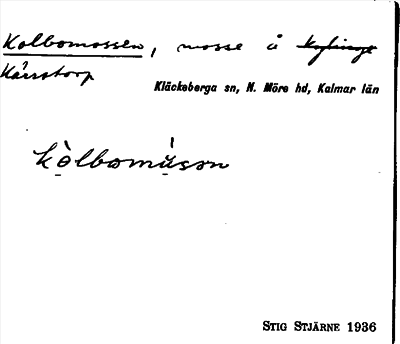 Kolbomossen, mosse å
Kärrstorp
Kläckeberga sn, N. Möre hd, Kalmar län
kòlbomùsǝn
STIG STJÄRNE 1936